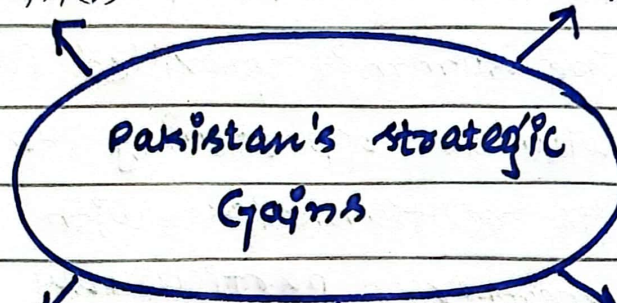 Pakistan's strategic
Gains